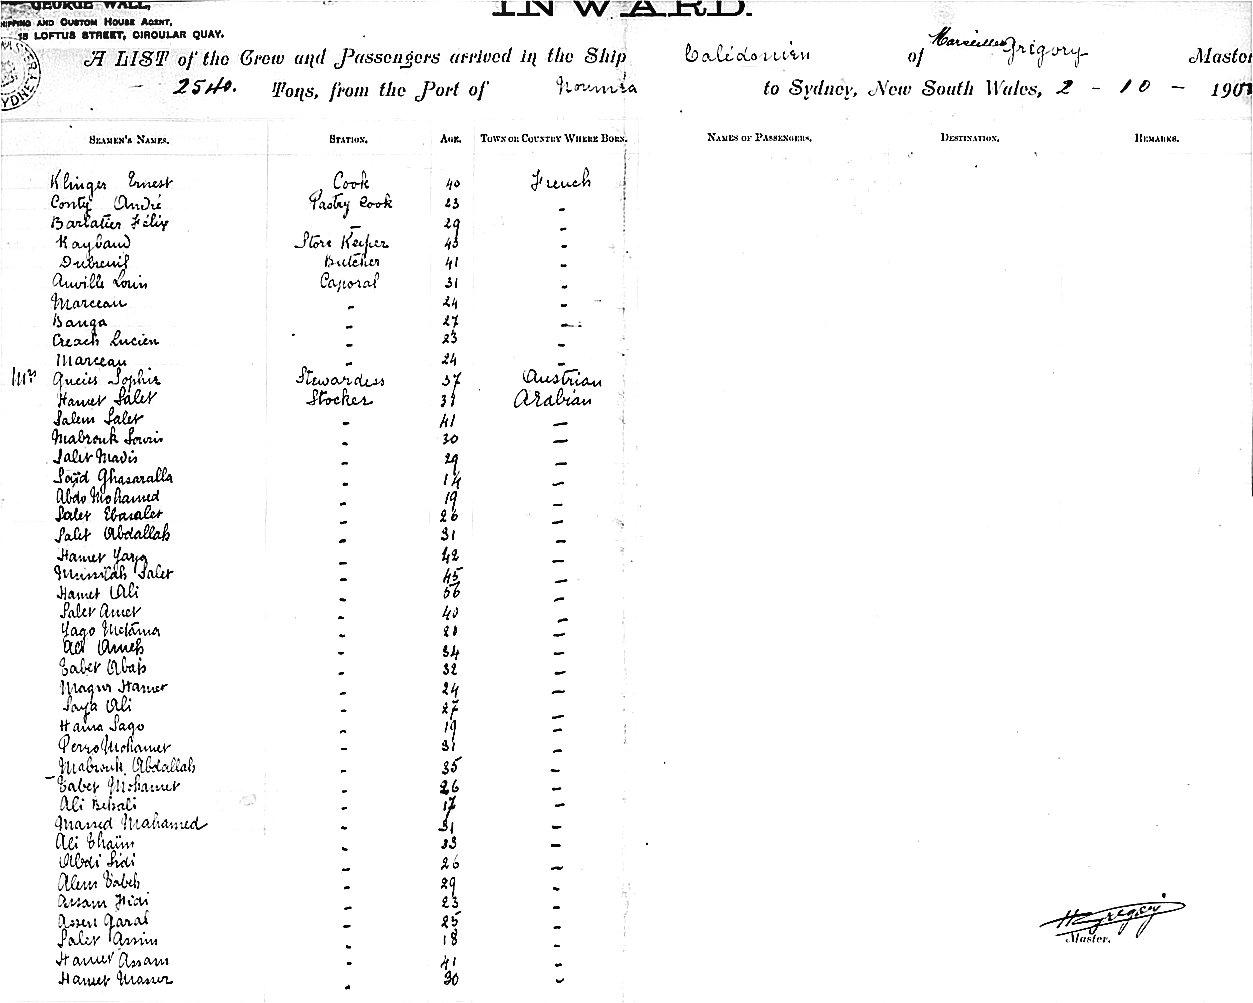 GEORGE WALL,
SHIPPING AND CUSTOM HOUSE AGENT,
15 LOFTUS STREET, CIRCULAR QUAY.
INWARD.
A LIST of the Crew and Passengers arrived in the Ship Calédonien of Marseilles Grégory Master
2540. Tons, from the Port of Nouméa to Sydney, New South Wales, 2 - 10 - 190
SEAMEN'S NAMES. STATION. AGE. TOWN OR COUNTRY WHERE BORN. NAMES OF PASSENGERS. DESTINATION. REMARKS.
Klinger Ernest Cook 40 French
Conty André Pastry Cook 23 "
Barlatier Félix " 29 "
Raybaud Store Keeper 43 "
Dubreuil Butcher 41 "
Anville Louis Caporal 31 "
Marceau " 24 "
Banga " 27 "
Creach Lucien " 23 "
Marceau " 24 "
Mrs Queiss Sophie Stewardess 37 Austrian
Hamet Salet Stocker 31 Arabian
Salem Salet " 41 "
Mabrouk Souris " 30 "
Salet Madis " 29 "
Soyd Ghasaralla " 14 "
Abdo Mohamed " 19 "
Salet Ebasalet " 26 "
Salet Abdallah " 31 "
Hamet Yaya " 42 "
Salet " 45 "
Hamet Ali " 56 "
Salet Amet " 40 "
Yago " "
Ali Ameh " 34 "
Sabet Abab " 32 "
Hamet " 24 "
Saya Ali " 27 "
Hama Sago " 19 "
Perro Mohamet " 31 "
Mabrouk Abdallah " 35 "
Sabet Mohamet " 26 "
Ali " 17 "
Massed Mahamed " 31 "
Ali Chaïm " 33 "
Abdi Sidi " 26 "
Alem Sabeh " 29 "
Assam " 23 "
Assen " 25 "
Salet Assim " 18 "
Hamet Assam " 41 "
Hamet Nasser " 30 "
H Grégory
Master.